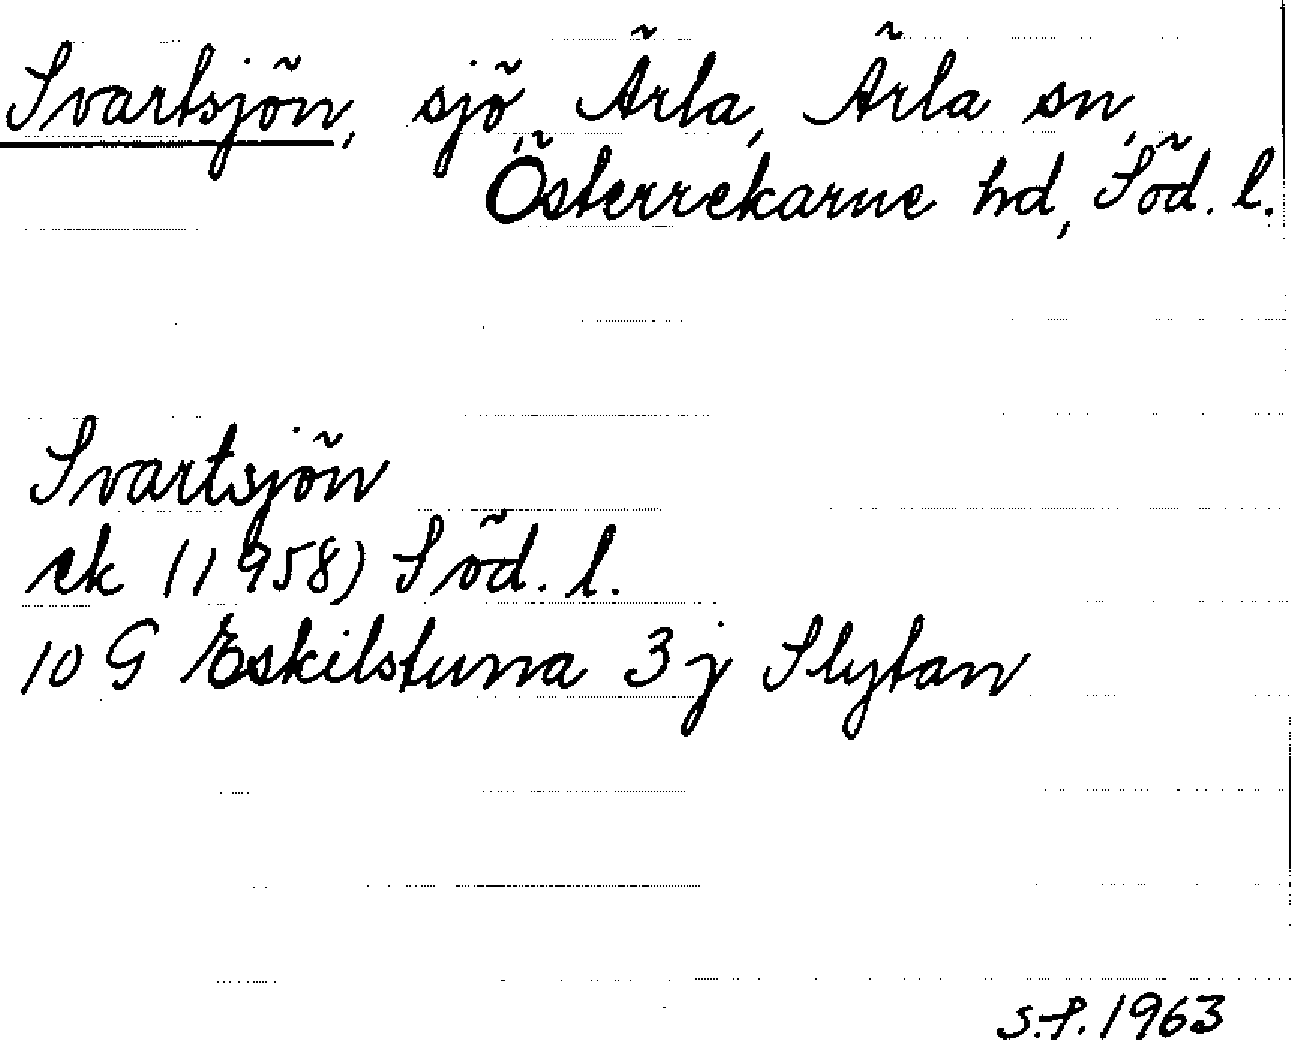 Svartsjön, sjö, Ärla, Ärla sn,
Österrekarne hd, Söd. l.
Svartsjön
ek (1958) Söd. l.
10 G Eskilstuna 3 j Slytan
s.f. 1963